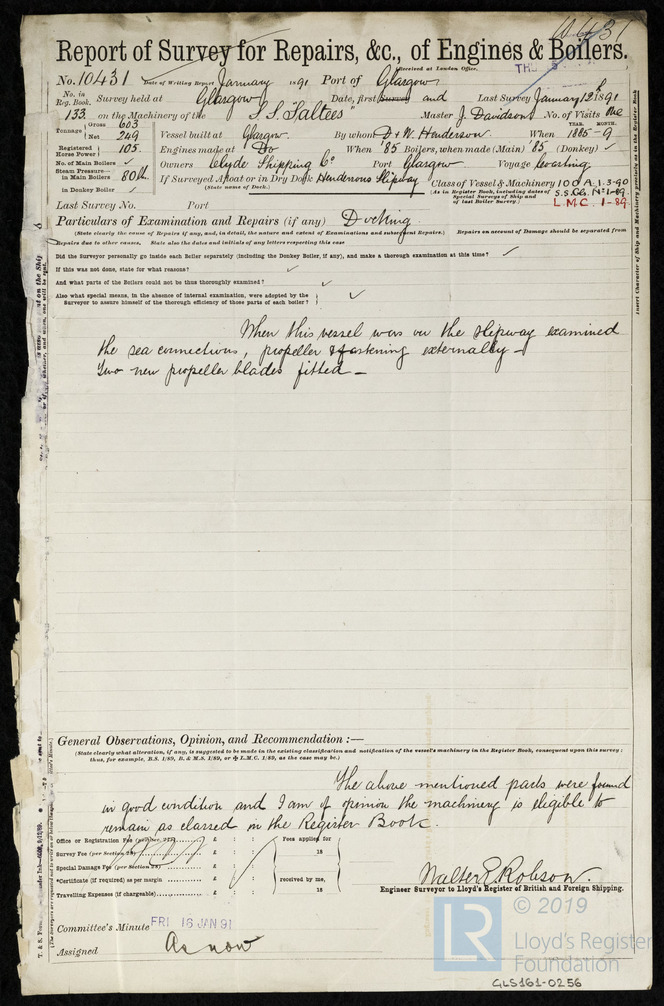 Report of Survey for Repairs, &c., of Engines & Boilers.
Received at London Office,
No. 10431 Date of Writing Report January 1891 Port of Glasgow
No. in Reg. Book. Survey held at Glasgow Date, first Survey and Last Survey January 12th 1891
133 on the Machinery of the S.S. "Saltees" Master J. Davidson No. of Visits One
Tonnage Gross 603 Net 249 Vessel built at Glasgow By whom D & W. Henderson When YEAR. 1885 MONTH. 9
Registered Horse Power 105 Engines made at Do When '85 Boilers, when made (Main) '85 (Donkey) ✓
No. of Main Boilers ✓ Owners Clyde Shipping Co Port Glasgow Voyage Coasting
Steam Pressure in Main Boilers 80 lb If Surveyed Afloat or in Dry Dock Hendersons Slipway Class of Vessel & Machinery 100 A. 1. 3-90
(State name of Dock.) (As in Register Book, including dates of Special Surveys of Ship and of last Boiler Survey.) S.S. Gls. No 1-89
in Donkey Boiler ✓ L.M.C. 1-89
Last Survey No. Port
Particulars of Examination and Repairs (if any) Docking
(State clearly the cause of Repairs if any, and, in detail, the nature and extent of Examinations and subsequent Repairs.) Repairs on account of Damage should be separated from
Repairs due to other causes. State also the dates and initials of any letters respecting this case
Did the Surveyor personally go inside each Boiler separately (including the Donkey Boiler, if any), and make a thorough examination at this time? ✓
If this was not done, state for what reasons? ✓
And what parts of the Boilers could not be thus thoroughly examined? ✓
Also what special means, in the absence of internal examination, were adopted by the
Surveyor to assure himself of the thorough efficiency of those parts of each boiler? ✓
When this vessel was on the slipway examined
the sea connections, propeller & fastening externally –
Two new propeller blades fitted –
General Observations, Opinion, and Recommendation :—
(State clearly what alteration, if any, is suggested to be made in the existing classification and notification of the vessel's machinery in the Register Book, consequent upon this survey ;
thus, for example, B.S. 1/89, B. & M.S. 1/89, or ✠ L.M.C. 1/89, as the case may be.)
The above mentioned parts were found
in good condition and I am of opinion the machinery is eligible to
remain as classed in the Register Book.
Office or Registration Fee £ : : Fees applied for
Survey Fee (per Section 28) £ : : 18
Special Damage Fee (per Section 28) £ : :
*Certificate (if required) as per margin £ : : received by me,
Travelling Expenses (if chargeable) £ : : 18
Walter E. Robson.
Engineer Surveyor to Lloyd's Register of British and Foreign Shipping.
Committee's Minute FRI 16 JAN 91
Assigned As now
© 2019
LR
Lloyd's Register
Foundation
GLS161-0256